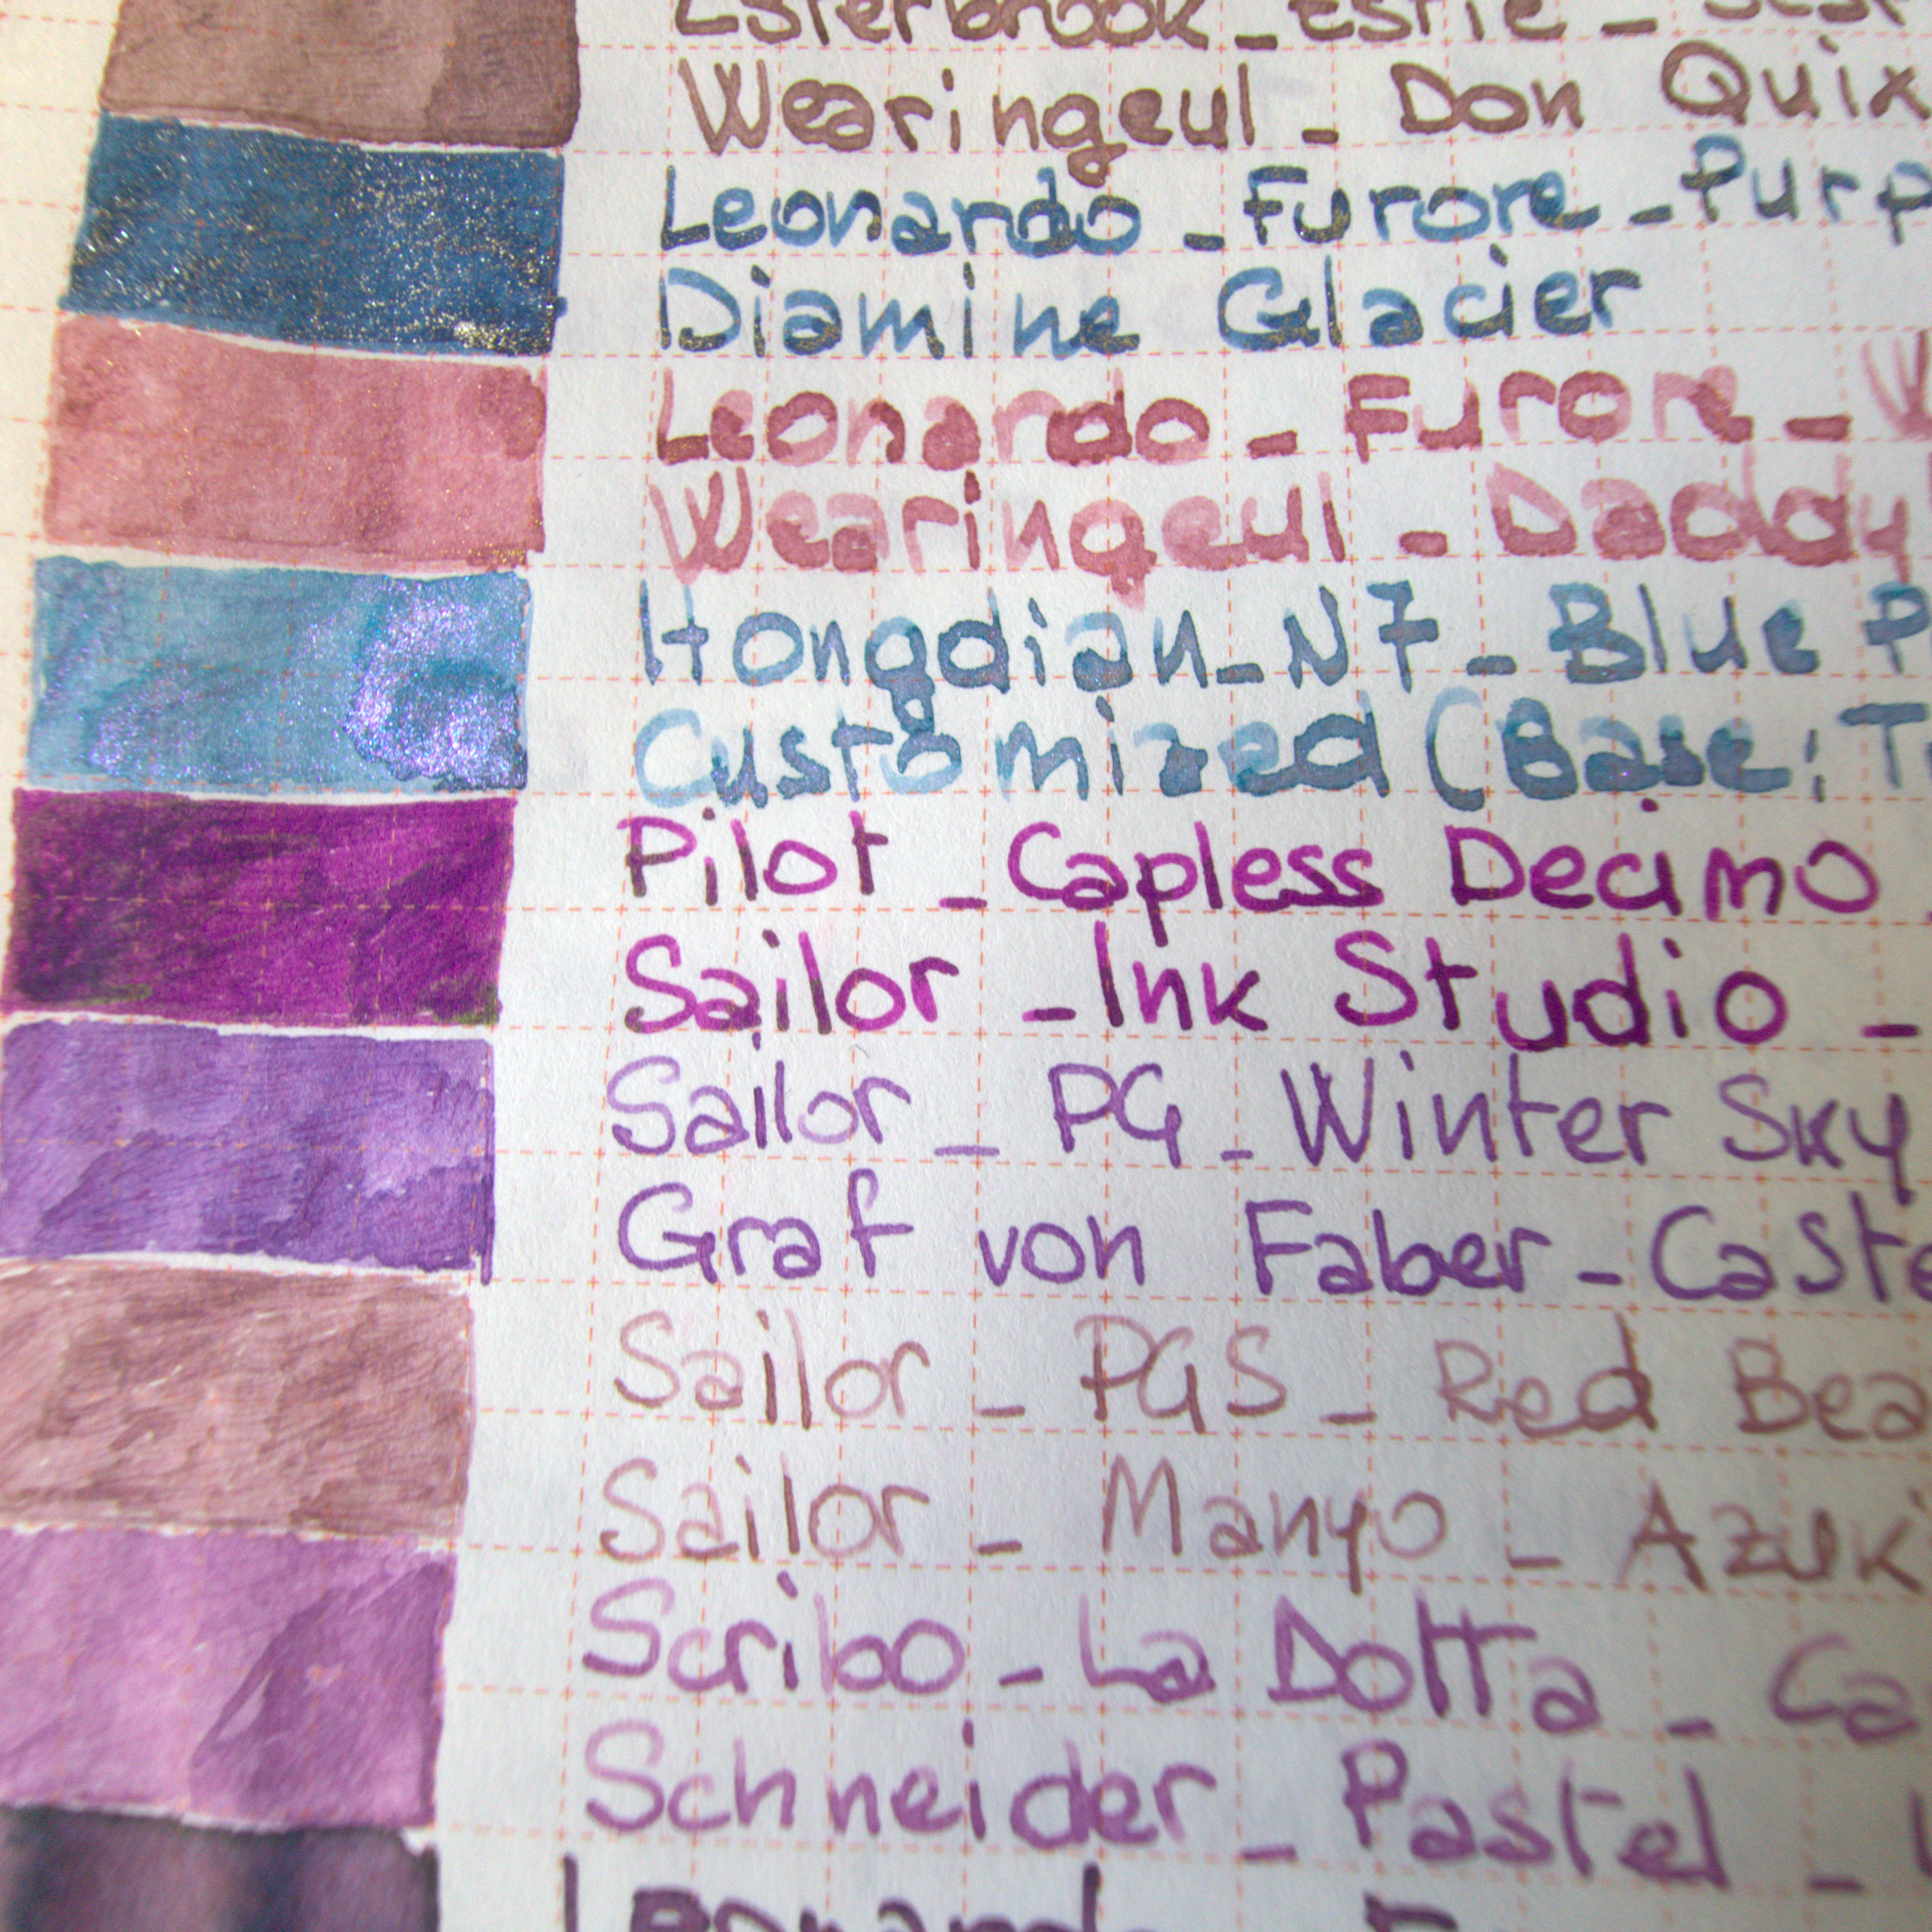 Esterbrook - Estie -
Wearingeul - Don Quix
Leonardo - Furore - Purp
Diamine Glacier
Leonardo - Furore -
Wearingeul - Daddy
Hongdian - N7 - Blue P
Customized (Base: T
Pilot - Capless Decimo
Sailor - Ink Studio -
Sailor - PG - Winter Sky
Graf von Faber - Caste
Sailor - PGS - Red Bea
Sailor - Manyo - Azuki
Scribo - La Dotta - Ca
Schneider - Pastel -
Leonard